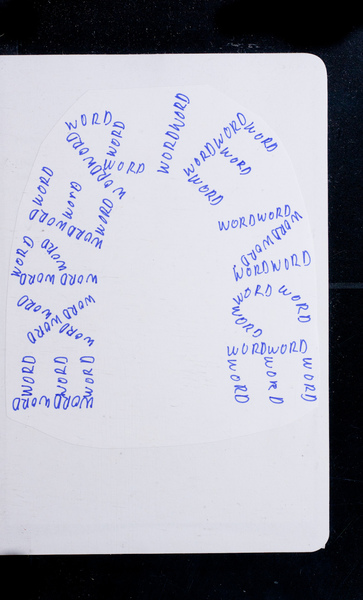 WORDWORD
WORD
WORD
WORD
WORDWORD
WORDWORD
WORDWORD
WORD
WORD
WORDWORD
WORD
WORD
WORD
WORDWORD
WORD
WORD
WORD
WORD
WORDWORD
WORDWORD
WORD
WORD
WORD
WORDWORD
WORDWORD
WORDWORD
WORD
WORD
WORD
WORDWORD
WORD
WORD
WORD